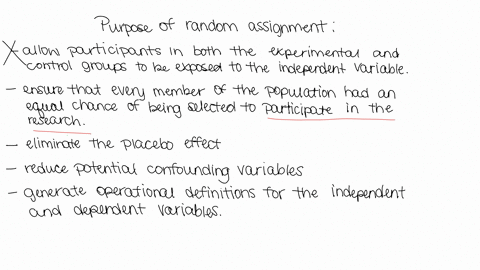 Purpose of random assignment:
- allow participants in both the experimental and
control groups to be exposed to the independent variable.
- ensure that every member of the population had an
equal chance of being selected to participate in the
research.
- eliminate the placebo effect
- reduce potential confounding variables
- generate operational definitions for the independent
and dependent variables.